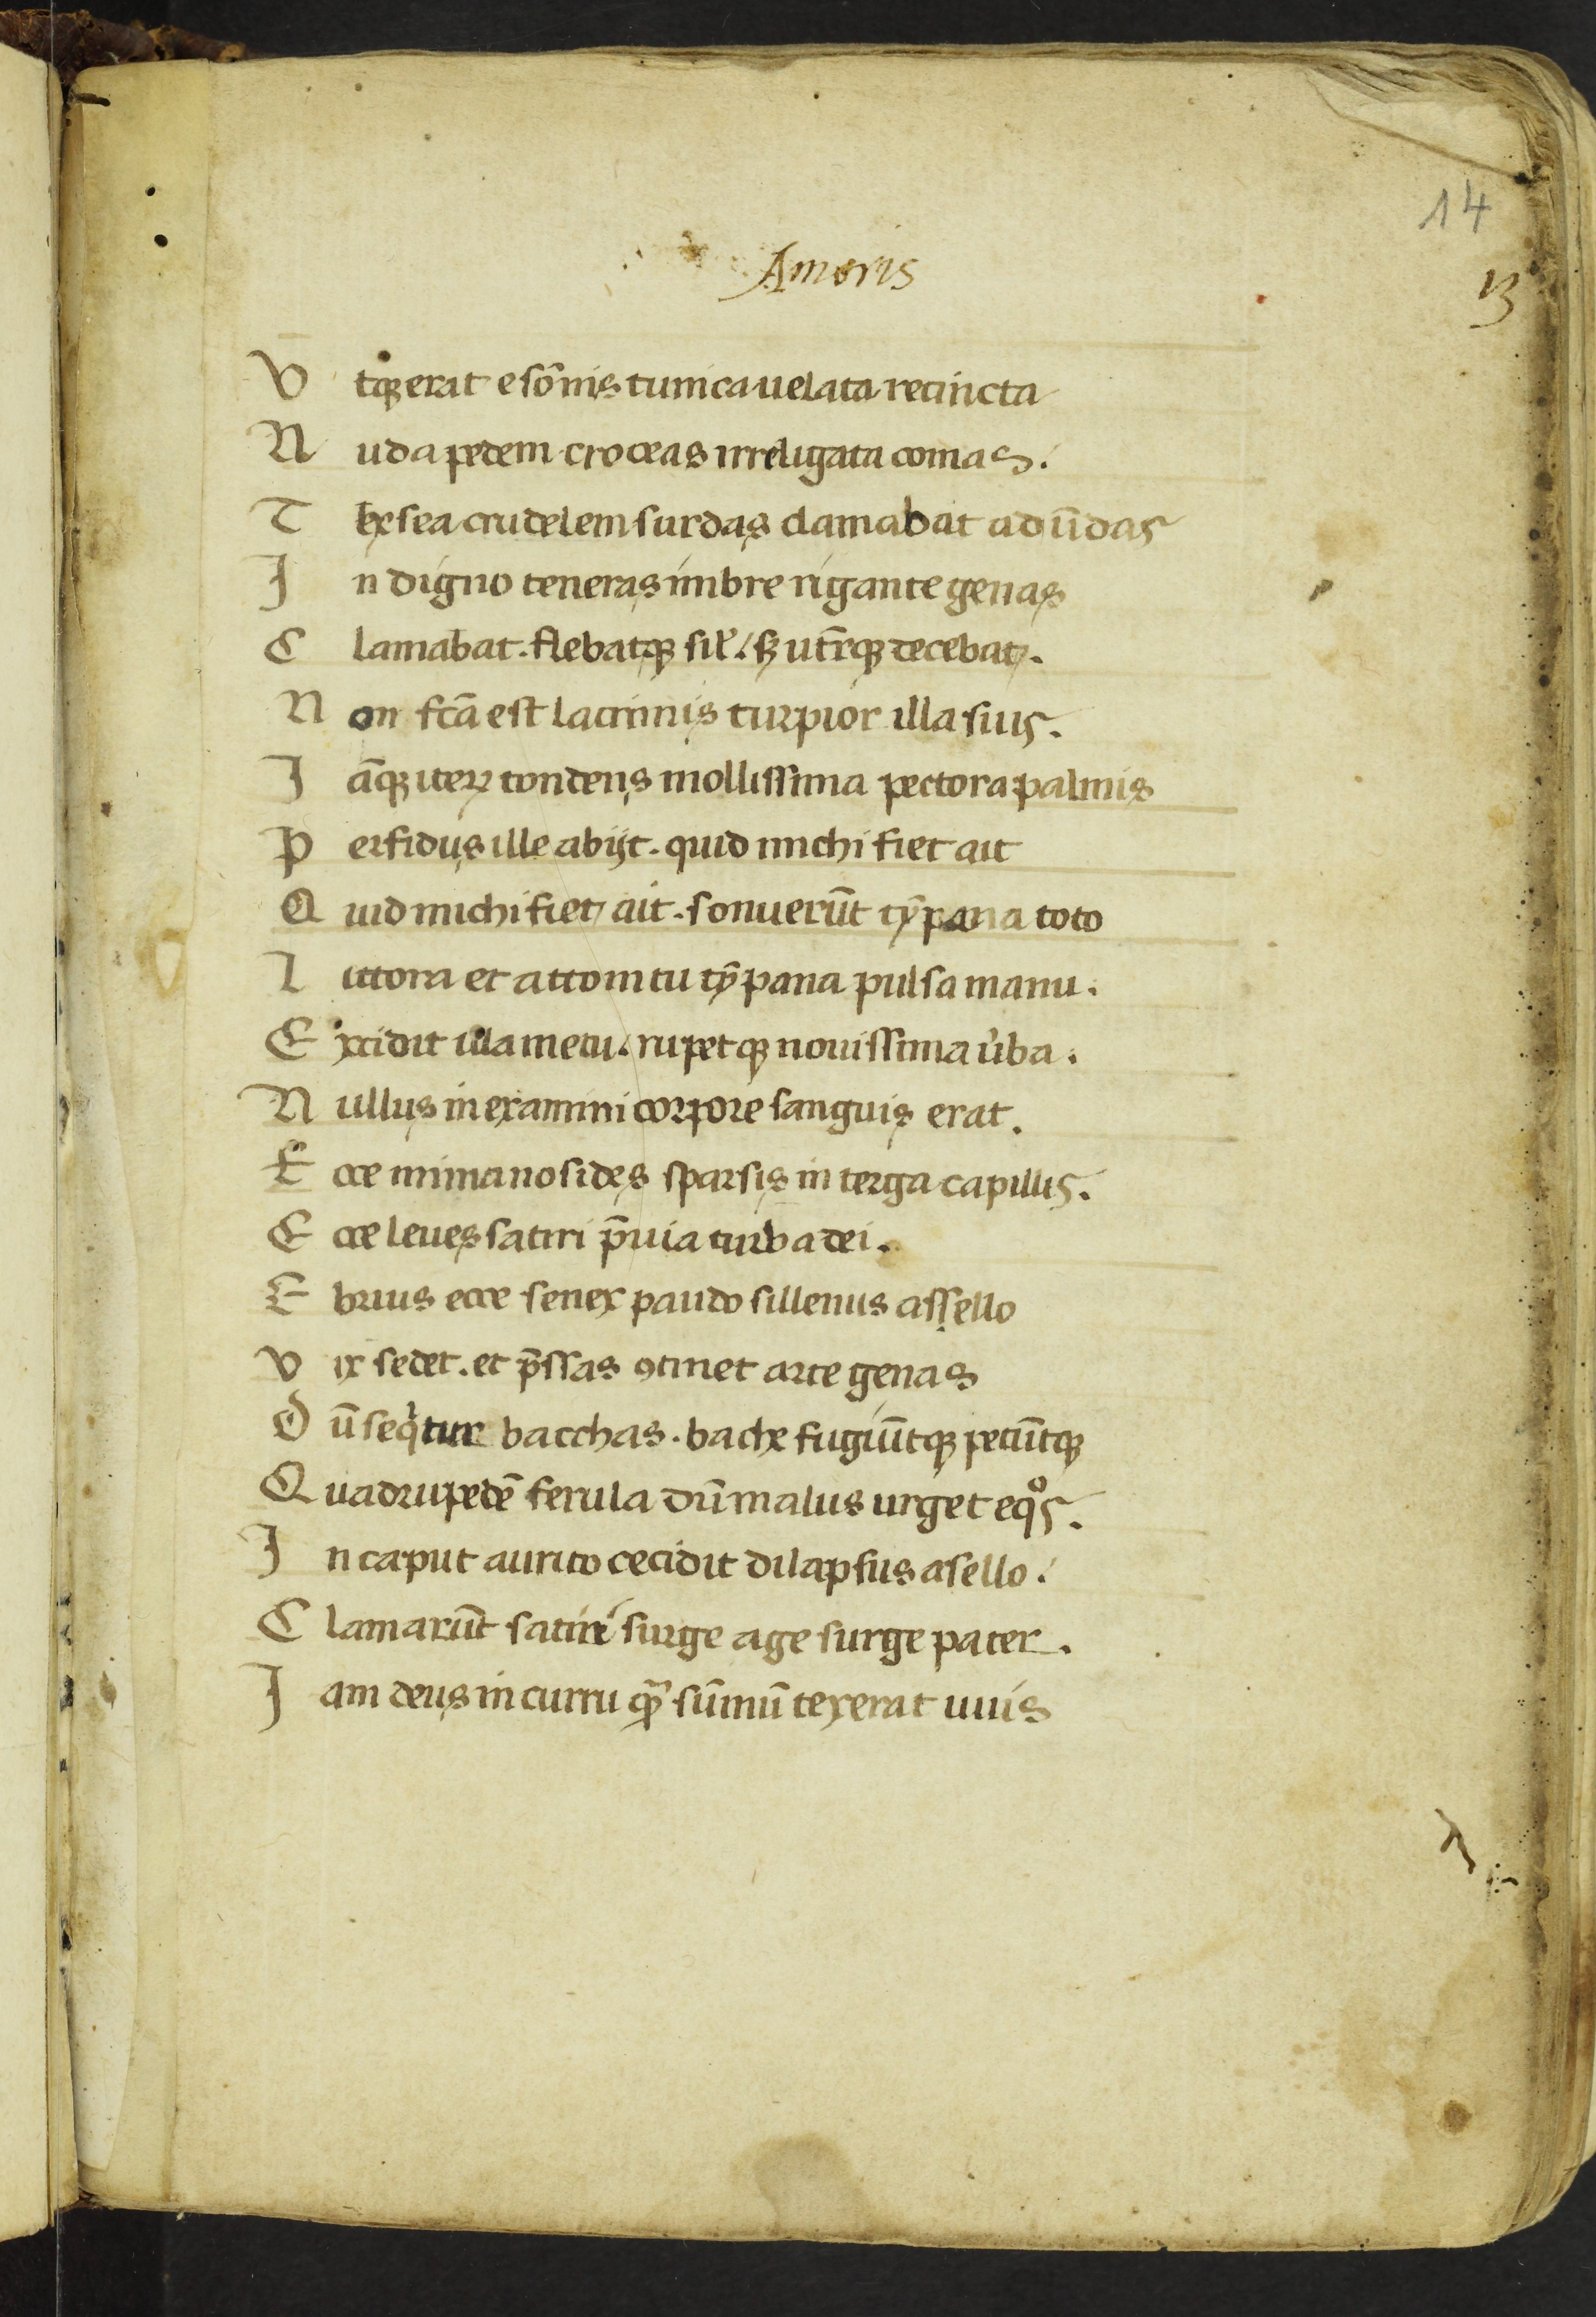 14
Amoris
13
V tqꝫ erat e sōnis tunica uelata recincta
N uda pedem croceas irreligata comas.
T hesea crudelem surdas clamabat ad ūdas
I n digno teneras imbre rigante genas
C lamabat. flebatqꝫ sił. sꝫ utrqꝫ decebat.
N on fcā est lacrimis turpior illa suis.
I āqꝫ iteꝝ tondens mollissima pectora palmis
P erfidus ille abijt. quid michi fiet ait
Q uid michi fiet ait. sonuerūt tȳpana toto
L ittora et attonitu tȳpana pulsa manu.
E xcidit illa metu. rupetqꝫ nouissima u̓ba.
N ullus in examini corpore sanguis erat.
E cce mimanosides sparsis in terga capillis.
E cce leues satiri p̄uia turba dei.
E brius ecce senex pando sillenus assello
V ix sedet. et p̄ssas ꝯtinet arte genas
D ū seqͥtur bacchas. bache fugiūtqꝫ petūtqꝫ
Q uadrupedē ferula dū malus urget eqͦs.
I n caput aurito cecidit dilapsus asello.
C lamarūt satiri surge age surge pater.
I am deus in curru qͣꝫ sūmū texerat uuis